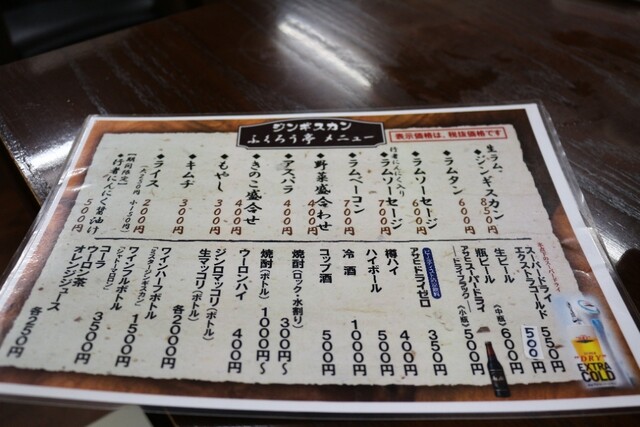 ジンギスカン
ふくろう亭 メニュー
表示価格は、税抜価格です
生ラム、ジンギスカン 850円
ラムタン 600円
ラムソーセージ 600円
行者にんにく入り
ラムソーセージ 700円
ラムベーコン 700円
野菜盛合わせ 400円
アスパラ 400円
きのこ盛合せ 400円
もやし 300円
キムチ 300円
ライス 200円
(大250円 小150円)
【期間限定】
行者にんにく醤油漬け 500円
スーパードライ 550円
エクストラコールド 500円
生ビール 600円
瓶ビール (中瓶) 600円
アサヒスーパードライ
ードライブラック(小瓶) 500円
アサヒドライゼロ 350円
樽ハイ 400円
ハイボール 500円
冷酒 1000円
コップ酒 500円
焼酎(ロック・水割り) 300円〜
焼酎(ボトル) 1000円〜
ウーロンハイ 400円
ジンロマッコリ(ボトル)
生マッコリ(ボトル) 各2000円
ワインハーフボトル
ワインフルボトル
(シャトーマコロン) 3500円
コーラ
ウーロン茶
オレンジジュース 各250円
"DRY"
EXTRA
COLD